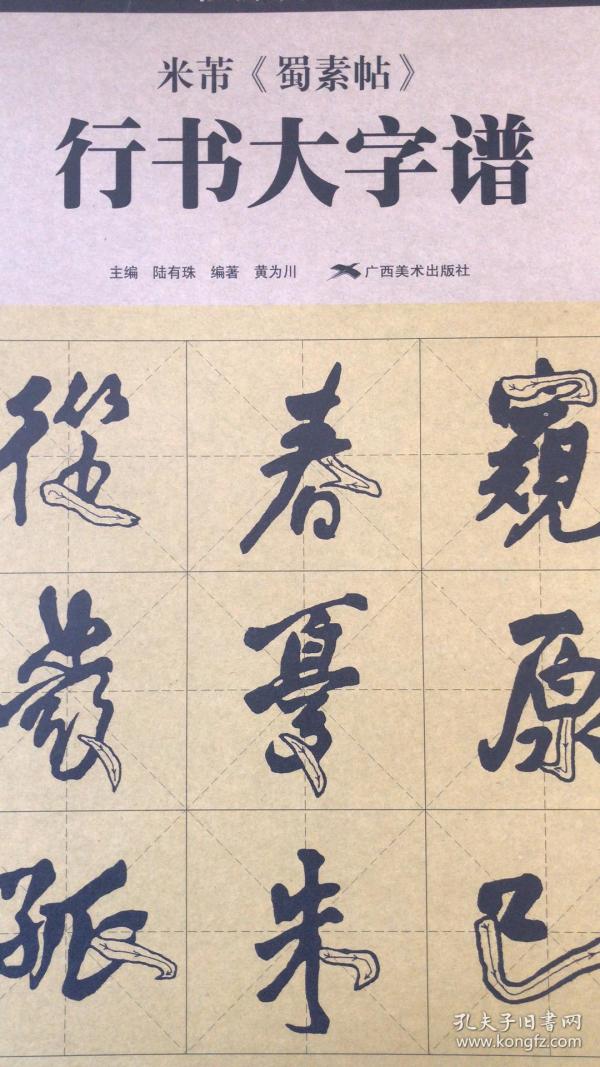 米芾《蜀素帖》
行书大字谱
主编 陆有珠 编著 黄为川 广西美术出版社
從 春 窺
原
孤 朱 己
孔夫子旧书网
www.kongfz.com